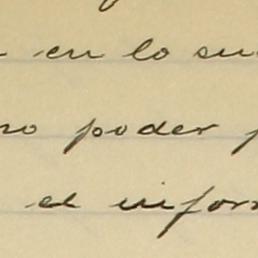 en lo su
no poder p
el infor